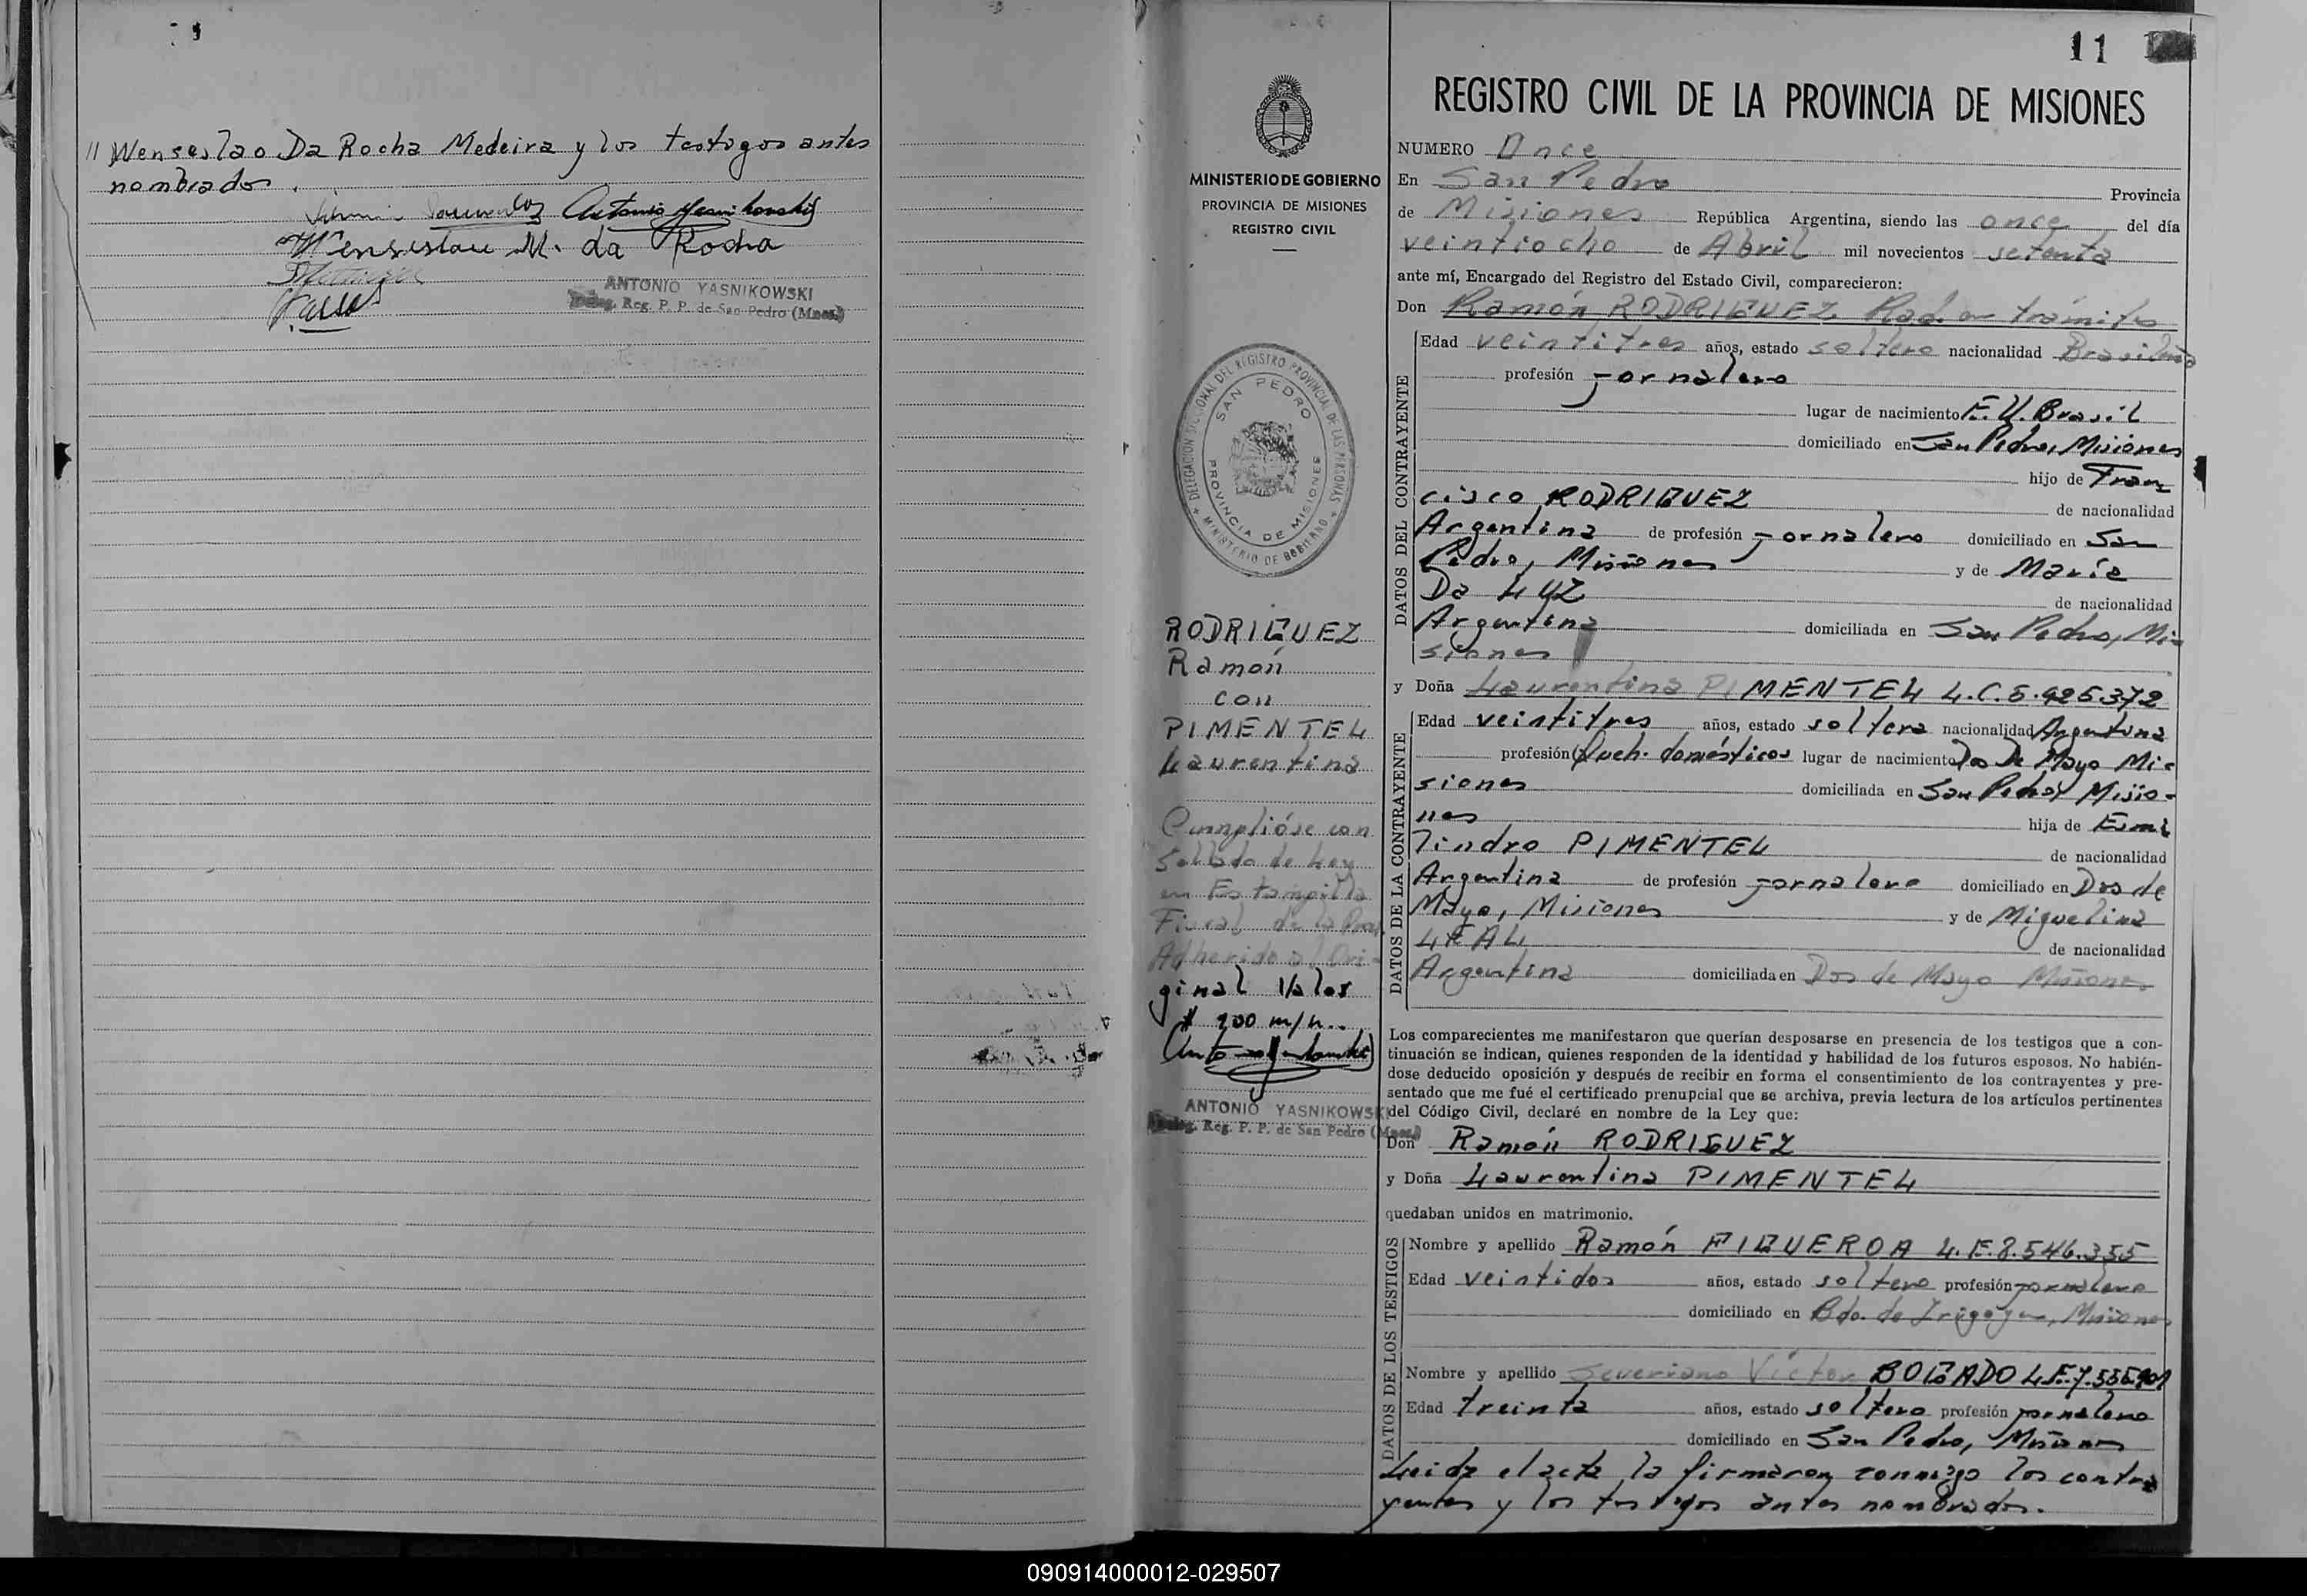 // Wenseslao Da Rocha Medeira y los testigos antes
nombrados.
Wenseslau M. da Rocha
ANTONIO YASNIKOWSKI
Reg. P. P. de San Pedro (Mnes.)
11
REGISTRO CIVIL DE LA PROVINCIA DE MISIONES
MINISTERIO DE GOBIERNO
PROVINCIA DE MISIONES
REGISTRO CIVIL
DELEGACION SECCIONAL DEL REGISTRO PROVINCIAL DE LAS PERSONAS
MINISTERIO DE GOBIERNO
SAN PEDRO
PROVINCIA DE MISIONES
RODRIGUEZ
Ramón
con
PIMENTEL
Laurentina
Cumplióse con
Sellado de Ley
en Estampilla
Fiscal de la Prov.
Adherido al Ori-
ginal Valor
$ 100 m/n..
ANTONIO YASNIKOWSKI
Reg. P. P. de San Pedro (Mnes.)
NUMERO Once
En San Pedro Provincia
de Misiones República Argentina, siendo las once del día
veintiocho de Abril mil novecientos setenta
ante mí, Encargado del Registro del Estado Civil, comparecieron:
Don Ramón RODRIGUEZ Rad. en trámite
DATOS DEL CONTRAYENTE
Edad veintitres años, estado soltero nacionalidad Brasileña
profesión jornalero
lugar de nacimiento E.U. Brasil
domiciliado en San Pedro, Misiones
hijo de Fran
cisco RODRIGUEZ de nacionalidad
Argentina de profesión jornalero domiciliado en San
Pedro, Misiones y de María
Da LUZ de nacionalidad
Argentina domiciliada en San Pedro, Mi-
siones
y Doña Laurentina PIMENTEL L.C.5.925.372
DATOS DE LA CONTRAYENTE
Edad veintitres años, estado soltera nacionalidad Argentina
profesión Queh. domésticos lugar de nacimiento Dos De Mayo Mi-
siones domiciliada en San Pedro, Misio-
nes hija de Esmi
lindro PIMENTEL de nacionalidad
Argentina de profesión jornalero domiciliado en Dos de
Mayo, Misiones y de Miguelina
LEAL de nacionalidad
Argentina domiciliada en Dos de Mayo Misiones
Los comparecientes me manifestaron que querían desposarse en presencia de los testigos que a con-
tinuación se indican, quienes responden de la identidad y habilidad de los futuros esposos. No habién-
dose deducido oposición y después de recibir en forma el consentimiento de los contrayentes y pre-
sentado que me fué el certificado prenupcial que se archiva, previa lectura de los artículos pertinentes
del Código Civil, declaré en nombre de la Ley que:
Don Ramón RODRIGUEZ
y Doña Laurentina PIMENTEL
quedaban unidos en matrimonio.
DATOS DE LOS TESTIGOS
Nombre y apellido Ramón FIGUEROA L.E.8.546.355
Edad veintidos años, estado soltero profesión jornalero
domiciliado en Bdo. de Irigoyen, Misiones
Nombre y apellido Severiano Victor BOGADO L.E.7.555.901
Edad treinta años, estado soltero profesión jornalero
domiciliado en San Pedro, Misiones
Leida el acta la firmaron conmigo los contra
yentes y los testigos antes nombrados.
090914000012-029507